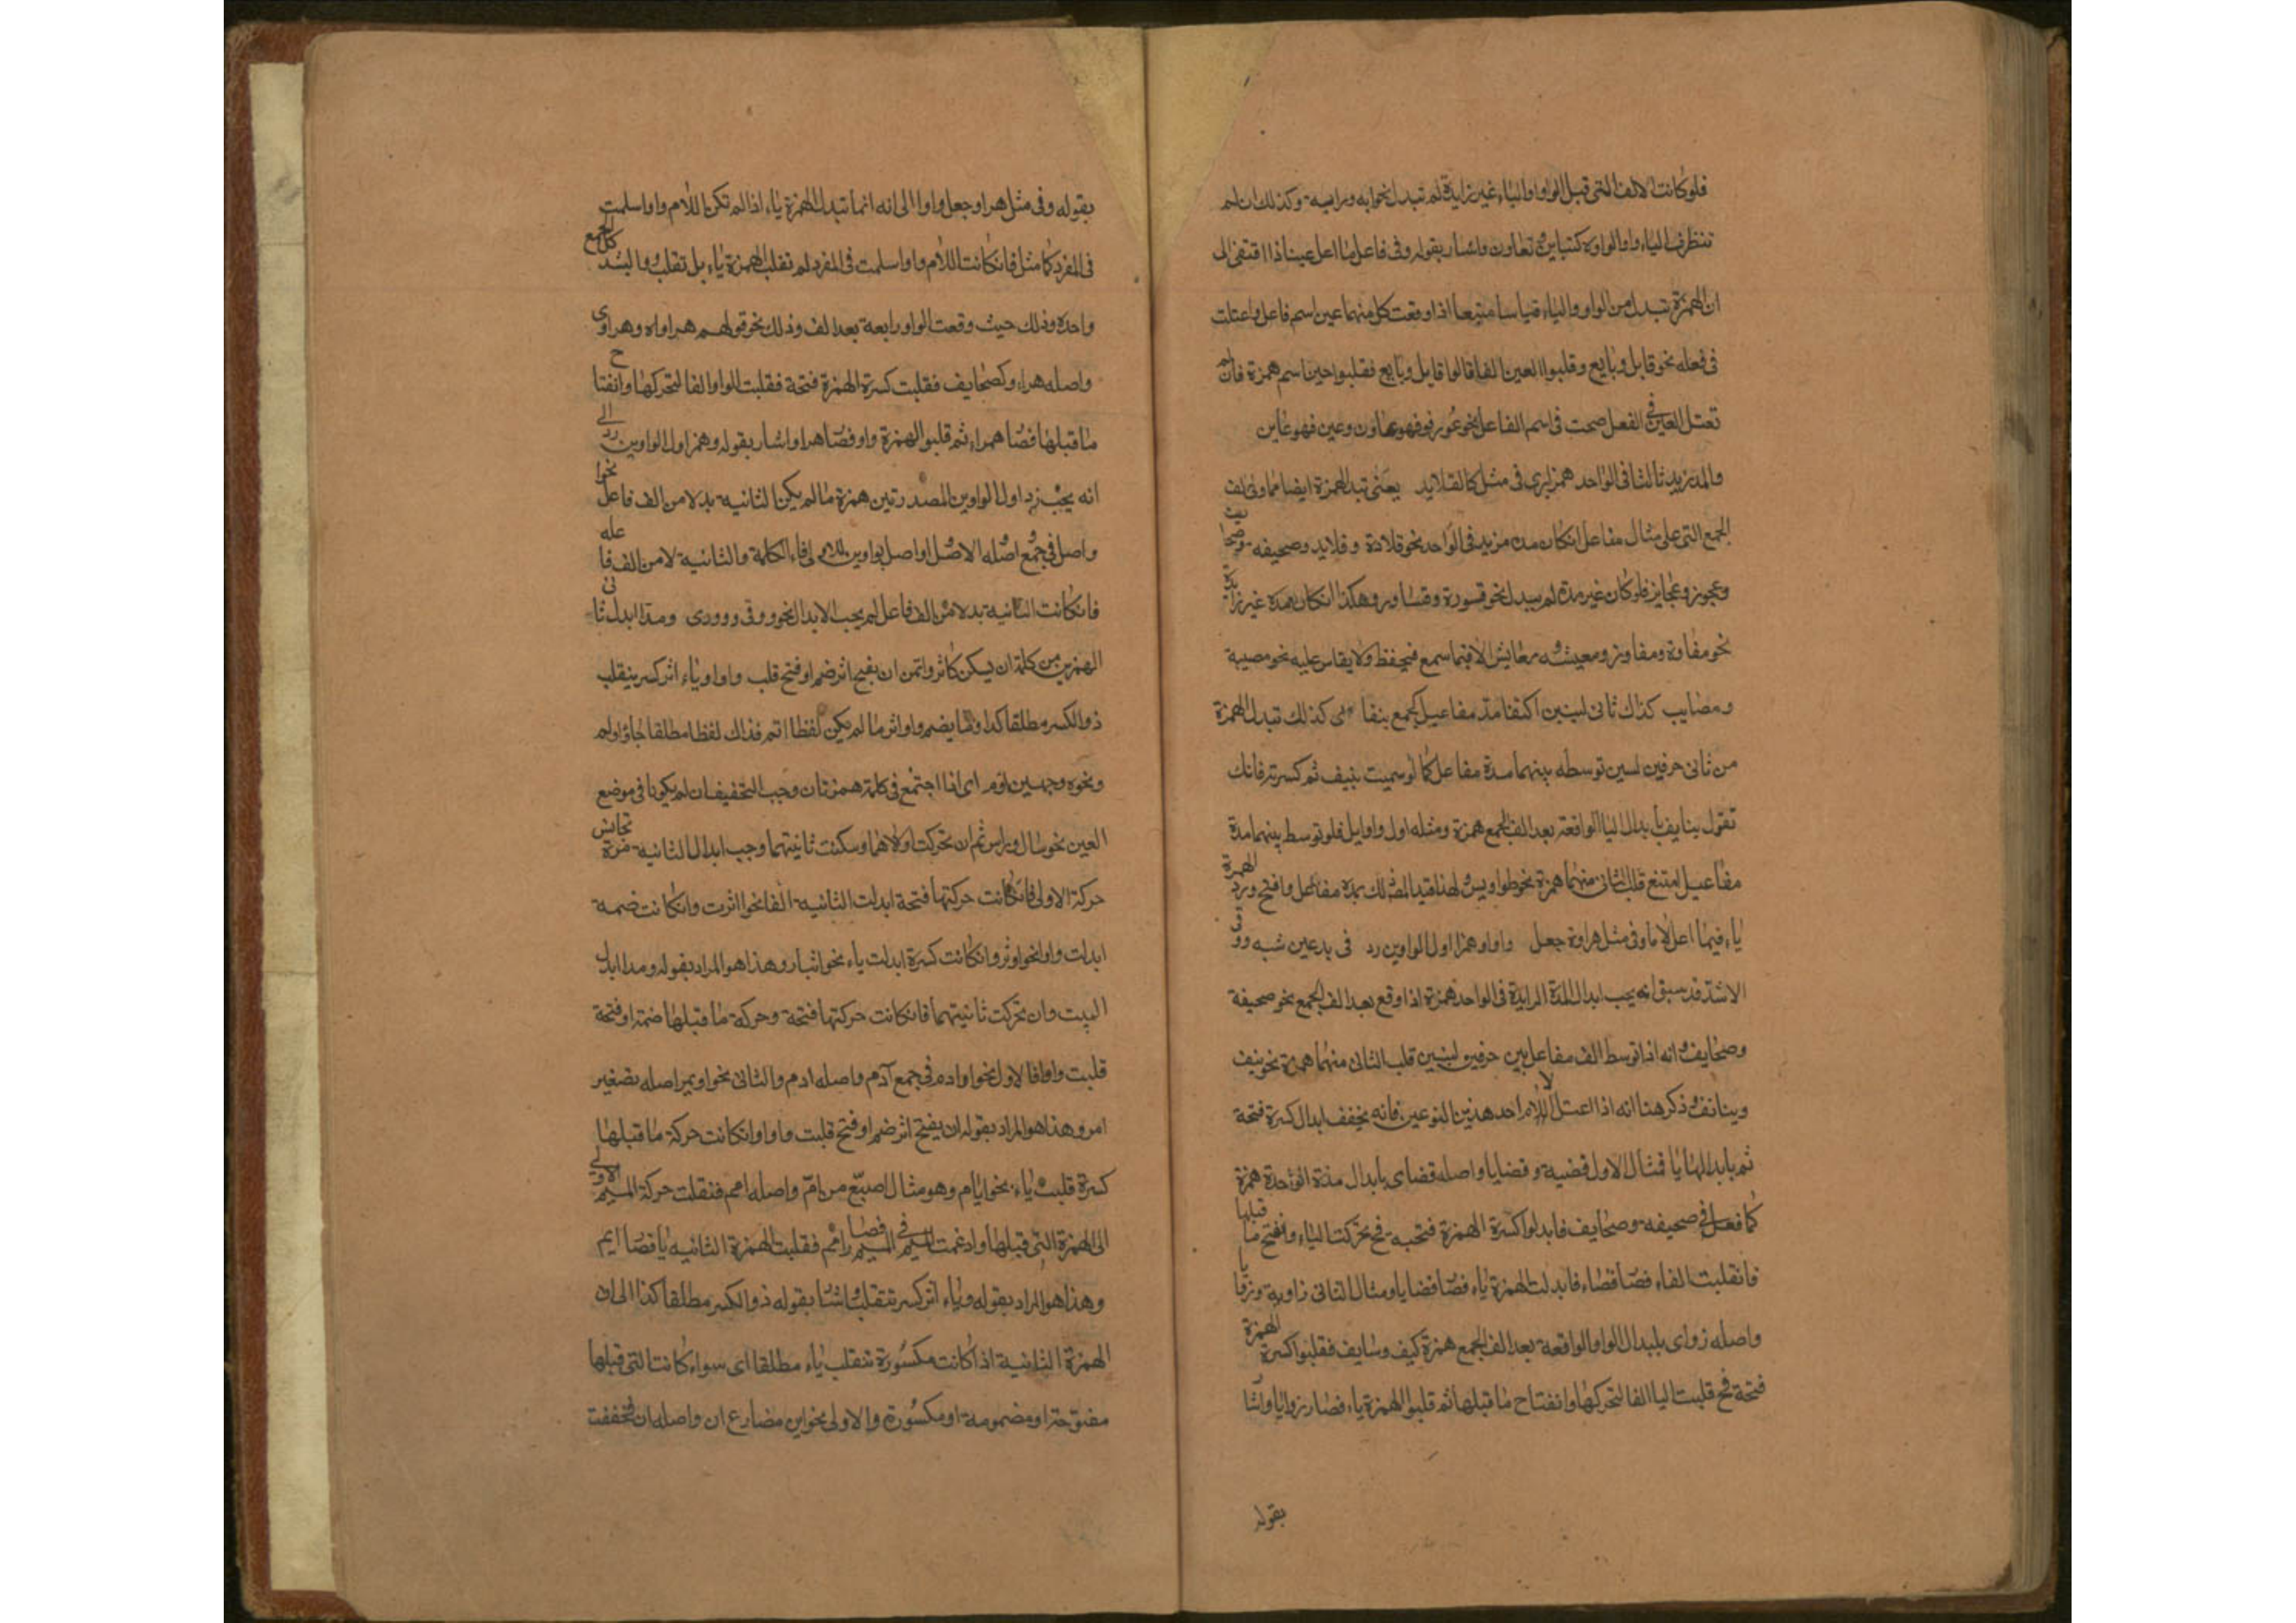 فلو كانت الالف التى قبل الواو والياء غير زايدة لم تبدل نحو ايه ورايه وكذلك ان لم
تتطرف الياء والواو كتباين وتعاون واشار بقوله وفى فاعل ما اعل عينا ذا اقتفى الى
ان الهمزة تبدل من الواو والياء قياسا متبعا اذا وقعت كل منهما عين اسم فاعل واعتلت
فى فعله نحو قايل وبايع وقلبوا العين الفا قالوا قايل وبايع فقلبوا همزة فان لم
تعتل العين فى الفعل صحت فى اسم الفاعل نحو عور فهو عاون وعين فهو عاين
والمد زيد ثالثا فى الواحد همزا يرى فى مثل كالقلايد يعنى تبدل الهمزة ايضا مما ولى الف
الجمع التى على مثال مفاعل ان كان مدة مزيد فى الواحد نحو قلادة وقلايد وصحيفه وصحايف
وعجوز وعجايز فلو كان غير مدة لم يبدل نحو قسورة وقساور وهكذا ان كان مدة غير زايدة
نحو مفازة ومفاوز ومعيشه ومعايش الا فيما سمع فيحفظ ولا يقاس عليه نحو مصيبة
ومصايب كذاك ثانى لينين اكتنفا مد مفاعيل كجمع نيفا اى كذلك تبدل الهمزة
من ثانى حرفين لينين توسطه بينهما مدة مفاعل كما لو سميت بنيف ثم كسرته فانك
تقول نيايف بابدال اليا الواقعة بعد الف الجمع همزة ومثله اول واوايل فلو توسط بينهما مدة
مفاعيل امتنع قلب الثانى منهما همزة نحو طواويس لهذا قيد المص ذلك بمدة مفاعل وافتح ورد الهمزة
ياء فيما اعل لاما وفى مثل هراوة جعل واوا وهمزا اول الواوين رد فى بدء غير شبه ووفى
الاشد قد سبق انه يجب ابدال المدة الزايدة فى الواحد همزة اذا وقع بعد الف الجمع نحو صحيفة
وصحايف وانه اذا توسط الف مفاعل بين حرفين لينين قلب الثانى منهما همزة نحو نيف
ونيائف وذكر هنا انه اذا اعتل اللام احد هذين النوعين فانه يخفف بابدال كسرة فتحة
ثم بابدالها يا فمثال الاول قضية وقضايا واصله قضاى بابدال مدة الواحدة همزة
كما فعل فى صحيفه وصحايف فابدلوا كسرة الهمزة فتحة فح تحركت الياء وانفتح ما قبلها
فانقلبت الفاء فصا قضاء فابدلت الهمزة ياء فصا قضايا ومثال الثانى زاوية وزوايا
واصله زواى بابدال الواو الواقعة بعد الف الجمع همزة كنيف ونيايف فقلبوا كسرة الهمزة
فتحة فح قلبت اليا الفا لتحركها وانفتاح ما قبلها ثم قلبوا الهمزة ياء فصار زوايا واشا
بقوله
بقوله وفى مثل هراو جعل واوا الى انه انما تبدل الهمزة ياء اذا لم تكن اللام واوا سلمت
فى المفرد كما مثل فان كانت اللام واوا سلمت فى المفرد لم تقلب الهمزة ياء بل تقلب
واحدة وذلك حيث وقعت الواو رابعة بعد الف وذلك نحو قولهم هراواه وهراوى
واصله هراء وكصحايف فقلبت كسرة الهمزة فتحة فقلبت الواو الفا لتحركها وانفتاح
ما قبلها فصا هراء ثم قلبوا الهمزة واو فصا هراوا واشار بقوله وهمز اول الواوين رد الى
انه يجب رد اول الواوين المصدرتين همزة ما لم يكن الثانيه بدلا من الف فاعل نحو
اواصل فى جمع اصله الاصل اواصل بواوين فاء الكلمة والثانية لا من الف فاعله
فان كانت الثانيه بدلا من الف فاعل لم يجب الابدال نحو ووفى وووري ومدا ابدل ثانى
الهمزين من كلمة ان يسكن كاثر واتمن ان يفتح اثر ضم او فتح قلب واوا وياء اثر كسر ينقلب
ذو الكسر مطلقا كذا وما يضم واوا اثر ما لم يكن لفظا اتم فذاك لفظا مطلقا جا واوم
ونحوه وجهين اوم اى اذا اجتمع فى كلمة همزتان وجب التخفيف ان لم يكونا فى موضع
العين نحو سال وراس ثم ان تحركت اولاهما وسكنت ثانيتهما وجب ابدال الثانيه مدة تجانس
حركة الاولى فان كانت حركتها فتحة ابدلت الثانيه الفا نحو اثرت وان كانت ضمه
ابدلت واوا نحو اوثر وان كانت كسرة ابدلت ياء نحو ايثار وهذا هو المراد بقوله ومدا ابدل
البيت وان تحركت ثانيتهما فان كانت حركتها فتحة وحركة ما قبلها ضمة او فتحة
قلبت واوا فالاول نحو اوادم فى جمع آدم واصله اادم والثانى نحو اويمر اصله تصغير
امر وهذا هو المراد بقوله ان يفتح اثر ضم او فتح قلبت واوا وان كانت حركة ما قبلها
كسرة قلبت ياء نحو ايام وهو مثال اصبع من ام واصله اامم فنقلت حركة الميم الاولى
الى الهمزة التى قبلها وادغمت الميم فى الميم فصا اام فقلبت الهمزة الثانيه يا فصا ايم
وهذا هو المراد بقوله وياء اثر كسر ينقلب واشا بقوله ذو الكسر مطلقا كذا الى ان
الهمزة الثانية اذا كانت مكسورة تنقلب ياء مطلقا اى سواء كانت التى قبلها
مفتوحة او مضمومة او مكسورة والاولى نحو اين مضارع ان واصله اان فخففت